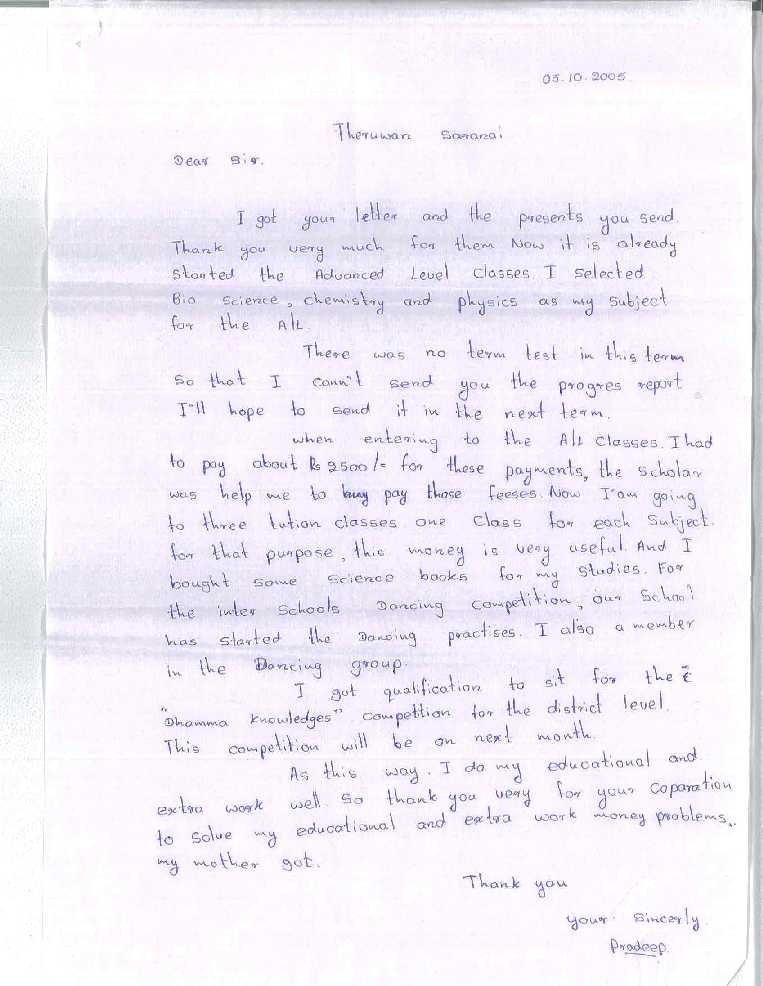 05.10.2005
Theruwan Saranai
Dear Sir.
I got your letter and the presents you send.
Thank you very much for them Now it is already
started the Advanced Level Classes. I selected
Bio Science, chemistry and physics as my subject
for the A/L.
There was no term test in this term
So that I cann't send you the progres report
I'll hope to send it in the next term.
when entering to the A/L classes. I had
to pay about Rs 2500/= for these payments, the scholar
was help me to pay those feeses. Now I'am going
to three tution classes one class for each subject.
for that purpose, this money is very useful. And I
bought some science books for my studies. For
the inter Schools Dancing competition, our School
has started the Dancing practises. I also a member
in the Dancing group.
I got qualification to sit for the
"Dhamma knowledges" competition for the district level.
This competition will be on next month.
As this way. I do my educational and
extra work well. So thank you very for your coparation
to solve my educational and extra work money problems..
my mother got.
Thank you
your sincerly.
Pradeep.